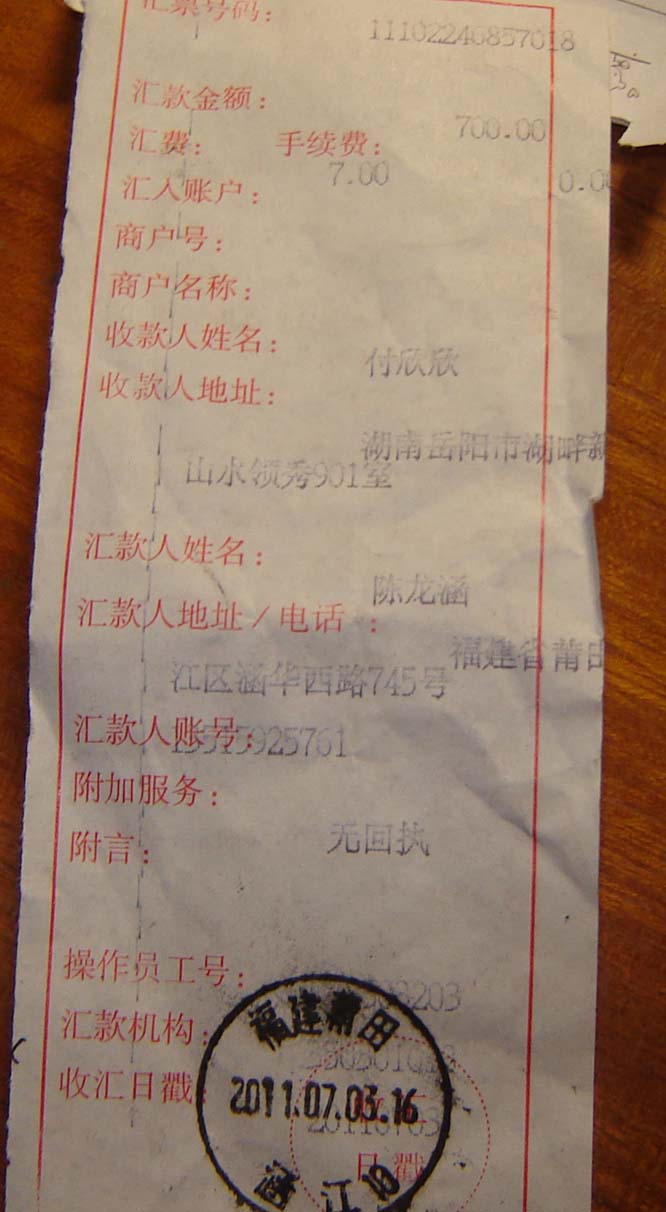 汇票号码：
11102240857018
汇款金额：
700.00
汇费： 手续费：
7.00 0.0
汇入账户：
商户号：
商户名称：
收款人姓名：
付欣欣
收款人地址：
湖南岳阳市湖畔新
山水领秀901室
汇款人姓名：
陈龙涵
汇款人地址／电话：
福建省莆田
江区涵华西路745号
汇款人账号：
附加服务：
无回执
附言：
操作员工号：
汇款机构：
收汇日戳
福建莆田
2011.07.03.16
日戳